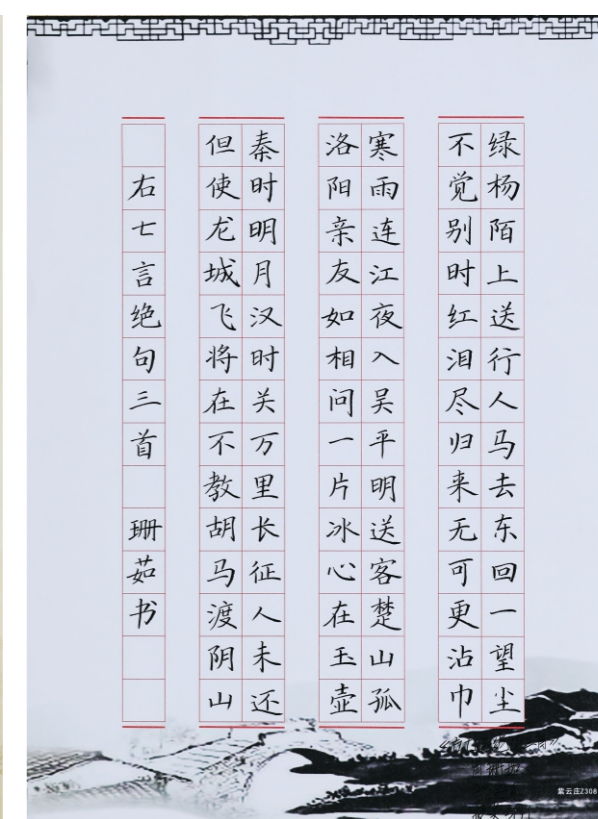 绿杨陌上送行人马去东回一望尘
不觉别时红泪尽归来无可更沾巾
寒雨连江夜入吴平明送客楚山孤
洛阳亲友如相问一片冰心在玉壶
秦时明月汉时关万里长征人未还
但使龙城飞将在不教胡马渡阴山
右七言绝句三首 珊茹书
紫云庄Z308